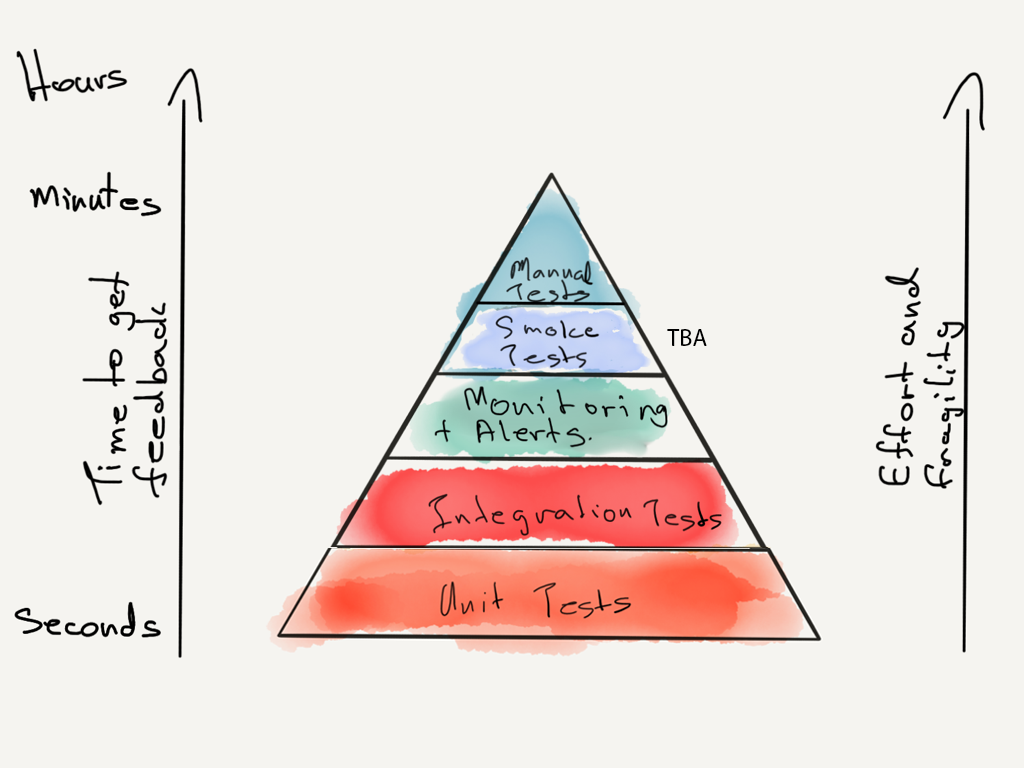 Hours
Minutes
Time to get
feedback
Seconds
Manual
Tests
Smoke
Tests
TBA
Monitoring
+ Alerts.
Integration Tests
Unit Tests
Effort and
fragility